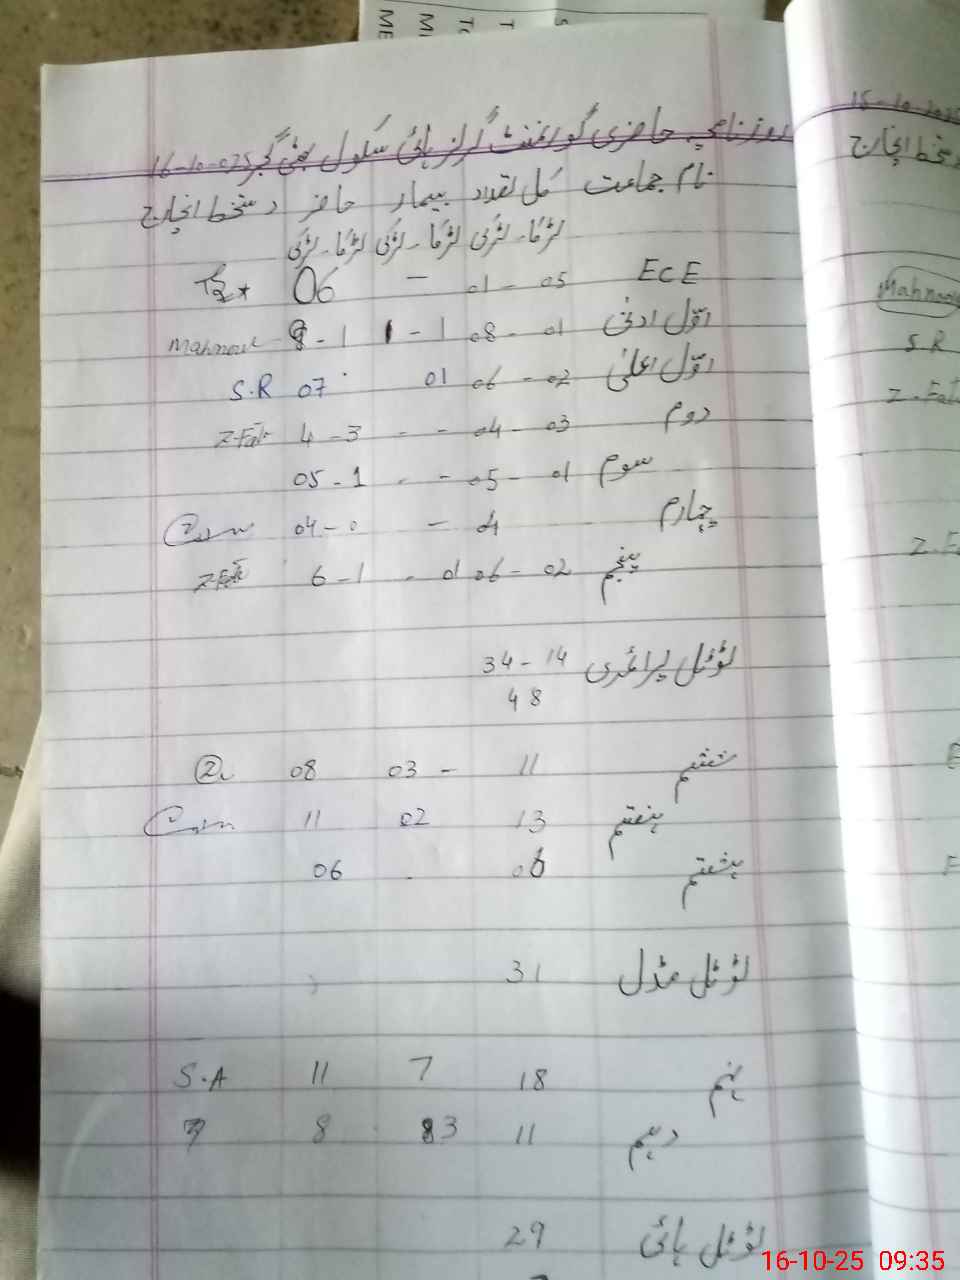 روزنامچہ حاضری گورنمنٹ گرلز ہائی سکول بھٹی گجر 16-10-025
نام جماعت کل تعداد بیمار حاضر دستخط انچارج
لڑکا۔ لڑکی لڑکا۔ لڑکی لڑکا۔ لڑکی
ECE 05 - 01 - 06
اوّل ادنیٰ 01 - 08 1 - 1 1 - 9 Mahnoor
اوّل اعلیٰ 02 - 06 01 07 S.R
دوم 03 - 04 - - 3 - 4 Z-Fati
سوم 01 - 05 - - 1 - 05
چہارم 04 - 0 - 04
پنجم 02 - 06 01 - 1 - 6 Z-Fati
ٹوٹل پرائمری 14 - 34
48
ششم 11 - 03 08
ہفتم 13 02 11
ہشتم 06 . 06
ٹوٹل مڈل 31
نہم 18 7 11 S.A
دہم 11 3 8
ٹوٹل ہائی 29
15-10-2025
دستخط انچارج
Mahnoor
S.R
Z-Fati
16-10-25 09:35